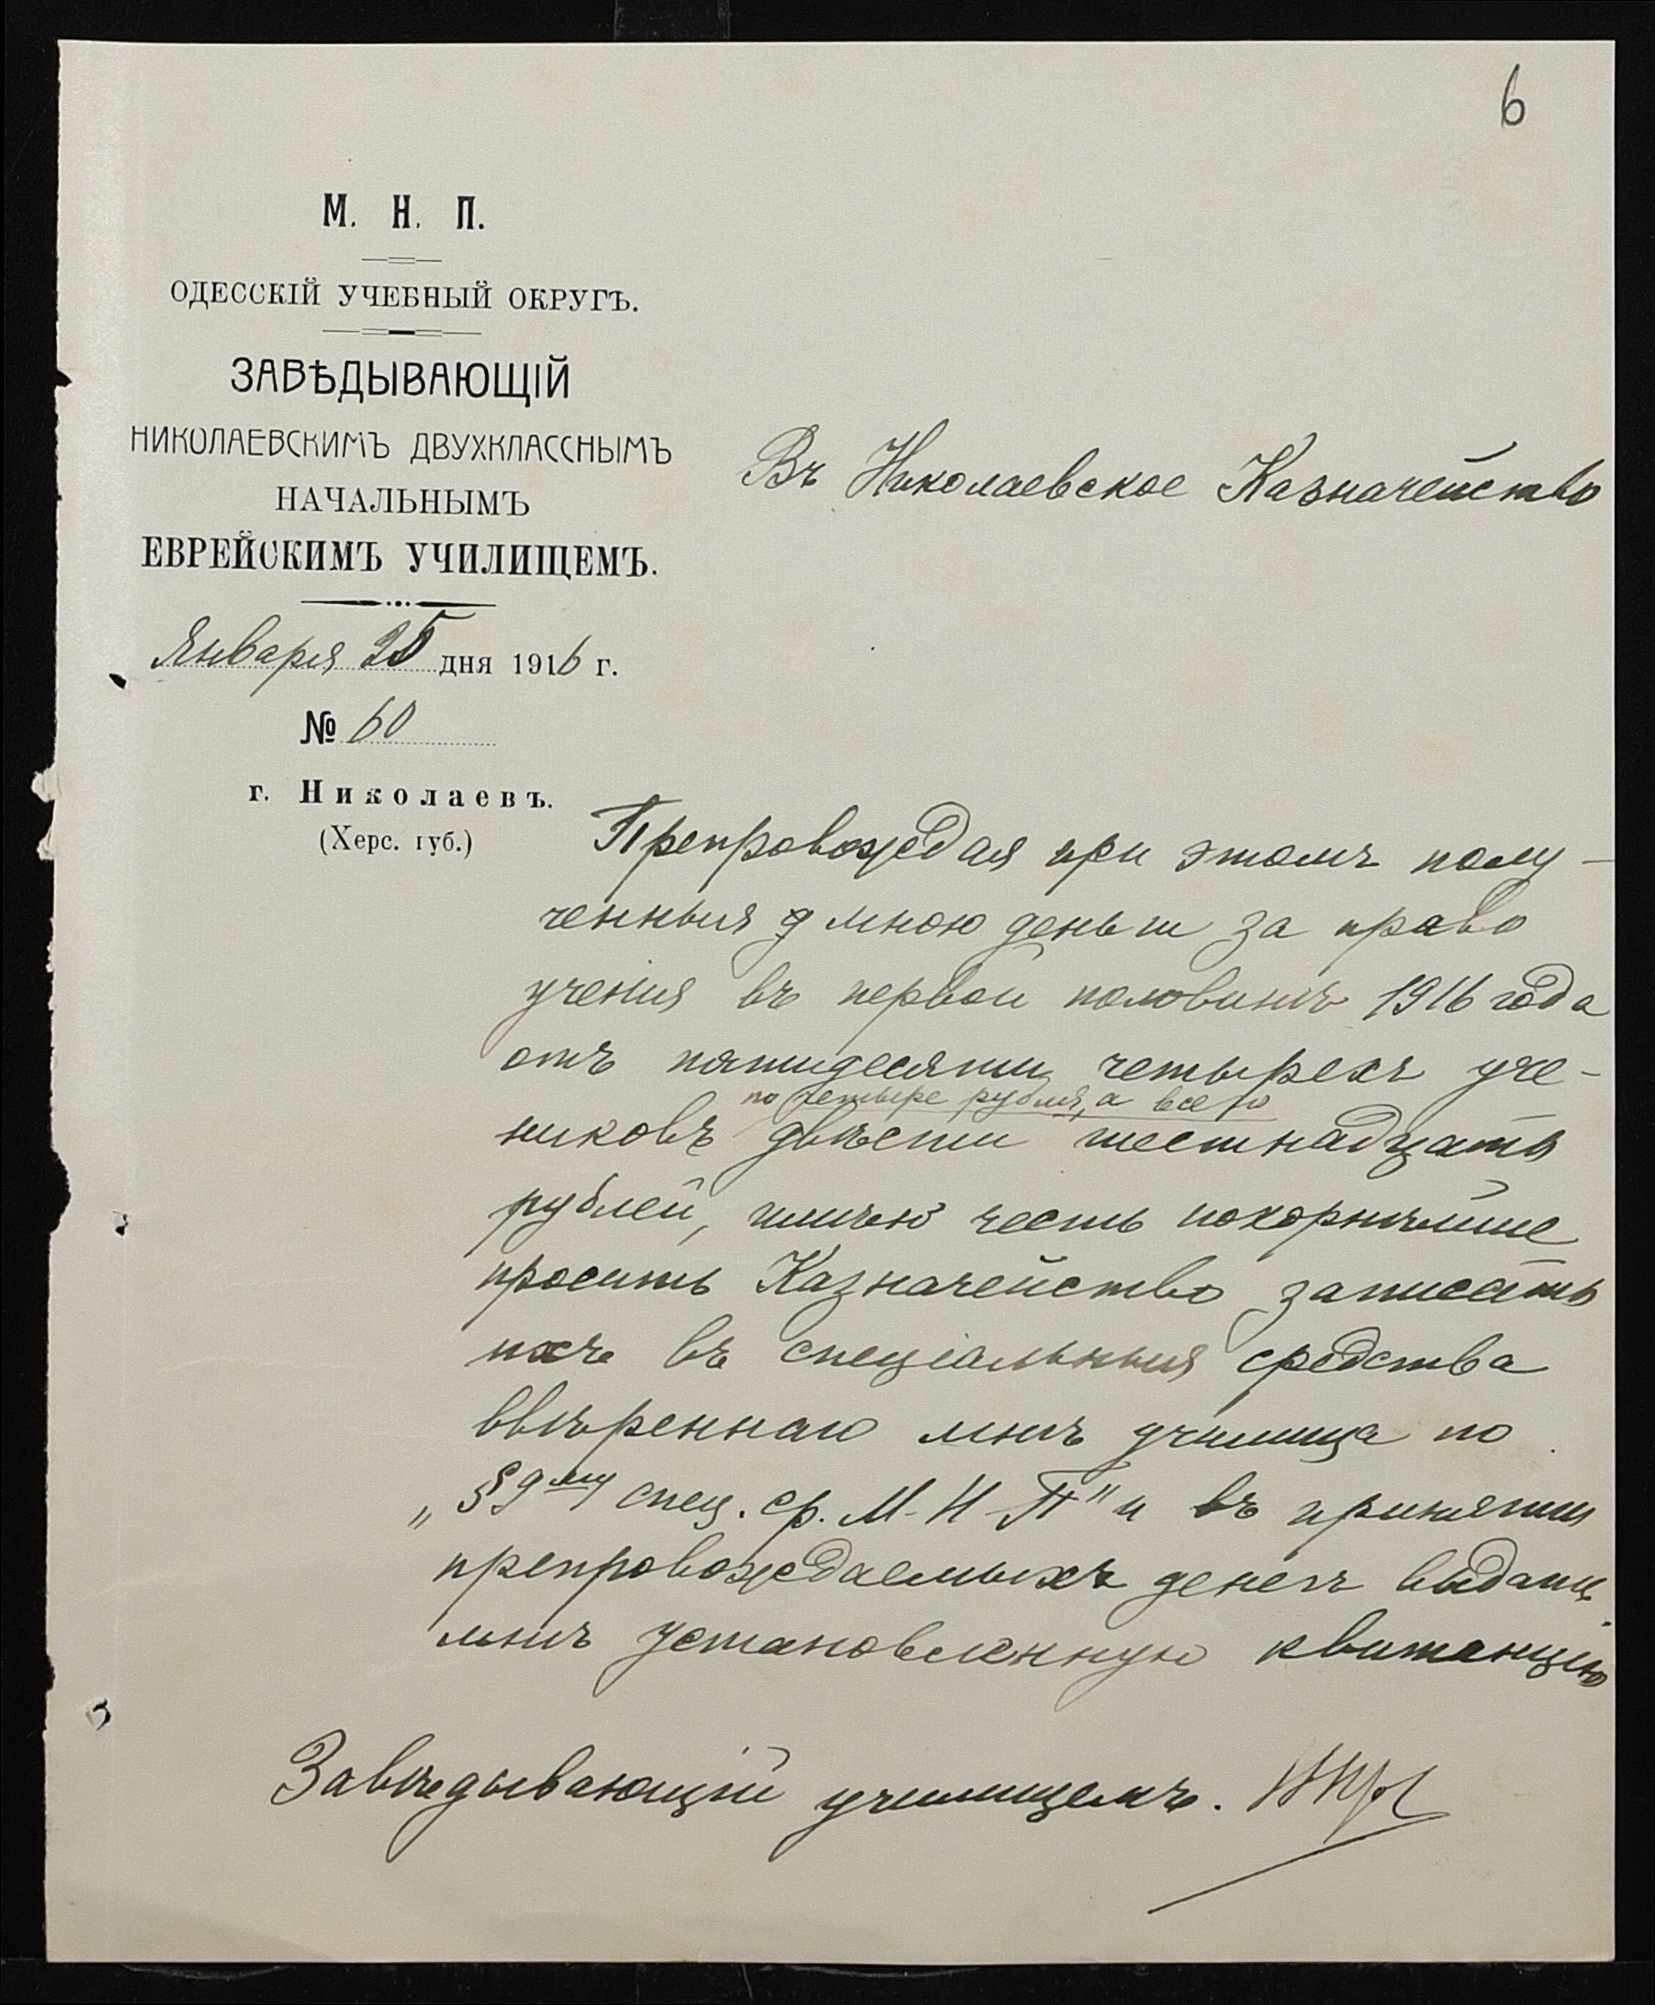 6
М. Н. П.
ОДЕССКІЙ УЧЕБНЫЙ ОКРУГЪ.
ЗАВѢДЫВАЮЩІЙ
НИКОЛАЕВСКИМЪ ДВУХКЛАССНЫМЪ
НАЧАЛЬНЫМЪ
ЕВРЕЙСКИМЪ УЧИЛИЩЕМЪ.
Января 25 дня 1916 г.
№ 60
г. Николаевъ.
(Херс. губ.)
Въ Николаевское Казначейство
Препровождая при этомъ полу-
ченныя мною деньги за право
ученія въ первой половинѣ 1916 года
отъ пятидесяти четырехъ уче-
по четыре рубля, а всего
никовъ двѣсти шестнадцать
рублей, имѣю честь покорнѣйше
просить Казначейство записать
ихъ въ спеціальныя средства
ввѣреннаго мнѣ училища по
„§ 9му спец. ср. М. Н. П" и въ принятии
препровождаемыхъ денегъ выдать
мнѣ установленную квитанцію
Завѣдывающій училищемъ.